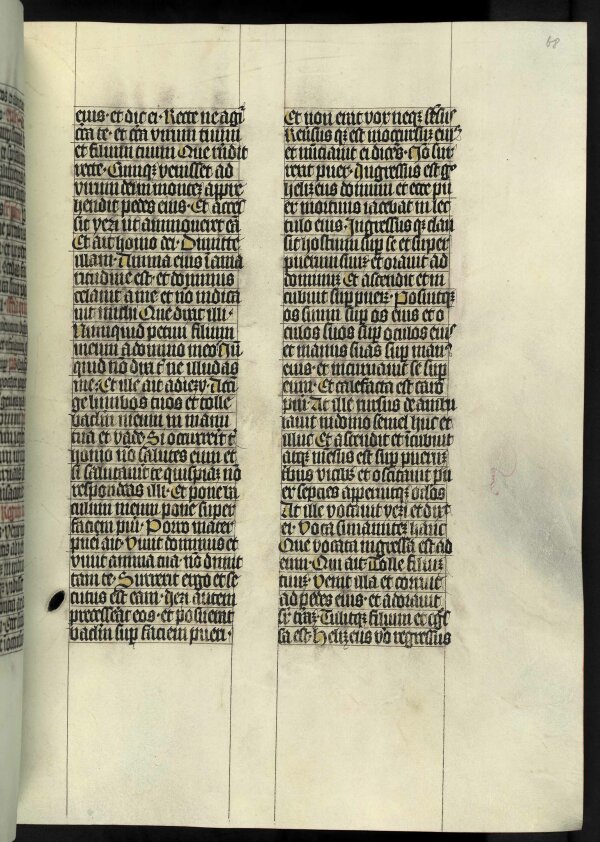 68
eius · et dic ei · Recte ne agit̄
c̄ra te · et c̄ra virum tuum
et filium tuum Que rn̄dit
recte · Cumq; venisset ad
virum dei in monteʒ appre
hendit pedes eius · Et acces
sit yezi ut ammoueret eā
Et ait homo dei · Dimitte
illam · Anima eius ī ama
ritudine est · et dominus
celauit a me et nō indica
uit michi Que dixit illi ·
Numquid petiui filium
meum a domino meo Nū
quid nō dixi t̄ ne illudas
me · Et ille ait ad iezy · Acci
ge lumbos tuos et tolle
baclm̄ meum in manu
tua et vade Si occurrerit t̄
homo nō salutes eum et
si salutauit te quispiaʒ nō
respondeas illi · Et pones ba
culum meum sup̄ super
faciem pūi · Porro mater
pueri ait · Viuit dominus et
viuit anima tua nō dimit
tam te · Surrexit ergo et se
cutus est eam · Jezi autem
precesserat eos · et posuerat
baclm̄ sup̄ faciem pueri ·
Et non erat vox neq; sens̄
Reūsus q; est in occursuʒ ei⁹
et nūciauit ei dicēs · Nō sur
rexit puer · Ingressus est g°
helizeus domum et ecce pu
er mortuus iacebat in lec
tulo eius · Ingressus q; clau
sit hostium sup̄ se et super
puerum suuʒ · et orauit ad
dominuʒ Et ascendit et in
cubuit sup̄ pueʒ · Posuitq;
os suum sup̄ os eius et o
culos suos sup̄ oculos ei⁹
et manus suas sup̄ man⁹
eius · et incuruauit se sup̄
eum · Et calefacta est caro
pūi · At ille rursus deambu
lauit in domo semel huc et
illuc Et ascendit et īcubuit
sup̄ eum Et
er septies aperuitq; oclos
At ille vocauit yezi et dix̄
ei · Voca sunamitē hanc
Que vocata ingressa est ad
eum · Qui ait Tolle filiuʒ
tuuʒ · Venit illa et corruit
ad pedes eius · et adorauit
sr̄ trāʒ Tulitq; filium et eg̓s
sa est · Helizeus v̄o regressus